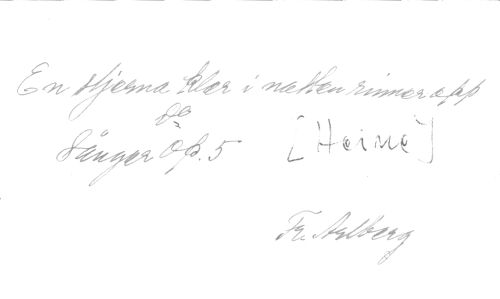 En stjerna klar i natten rinner opp
Do
Sånger Op. 5 [Heine]
Fr. Arlberg